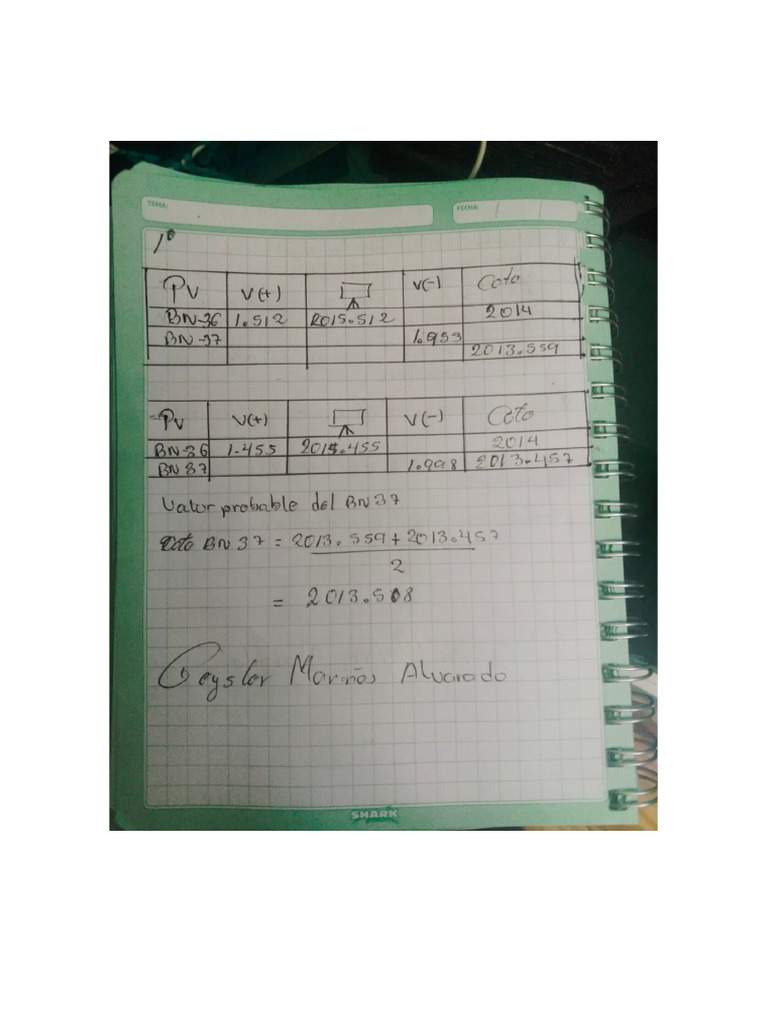 TEMA:
FECHA: / /
1°
Pv V(+) V(-) Cota
BN-36 1.512 2015.512 2014
BN-37 1.953
2013.559
Pv V(+) V(-) Cota
BN-36 1.455 2015.455 2014
BN 37 1.998 2013.457
Valor probable del BN 37
Cota BN 37 = 2013.559 + 2013.457
2
= 2013.508
Geysler Mariños Alvarado
SHARK